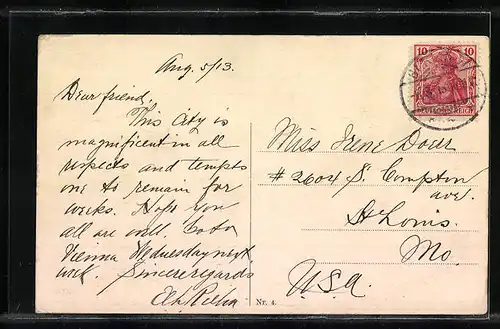 Aug. 5/13.
Dear friend,
This City is
magnificent in all
respects and tempts
one to remain for
weeks. Hope you
all are well. Go to
Vienna Wednesday next
week. Sincere regards
Miss Irene Doerr
# 2604 S. Compton
ave.
St Louis.
Mo.
U.S.A.
Nr. 4.
10 10